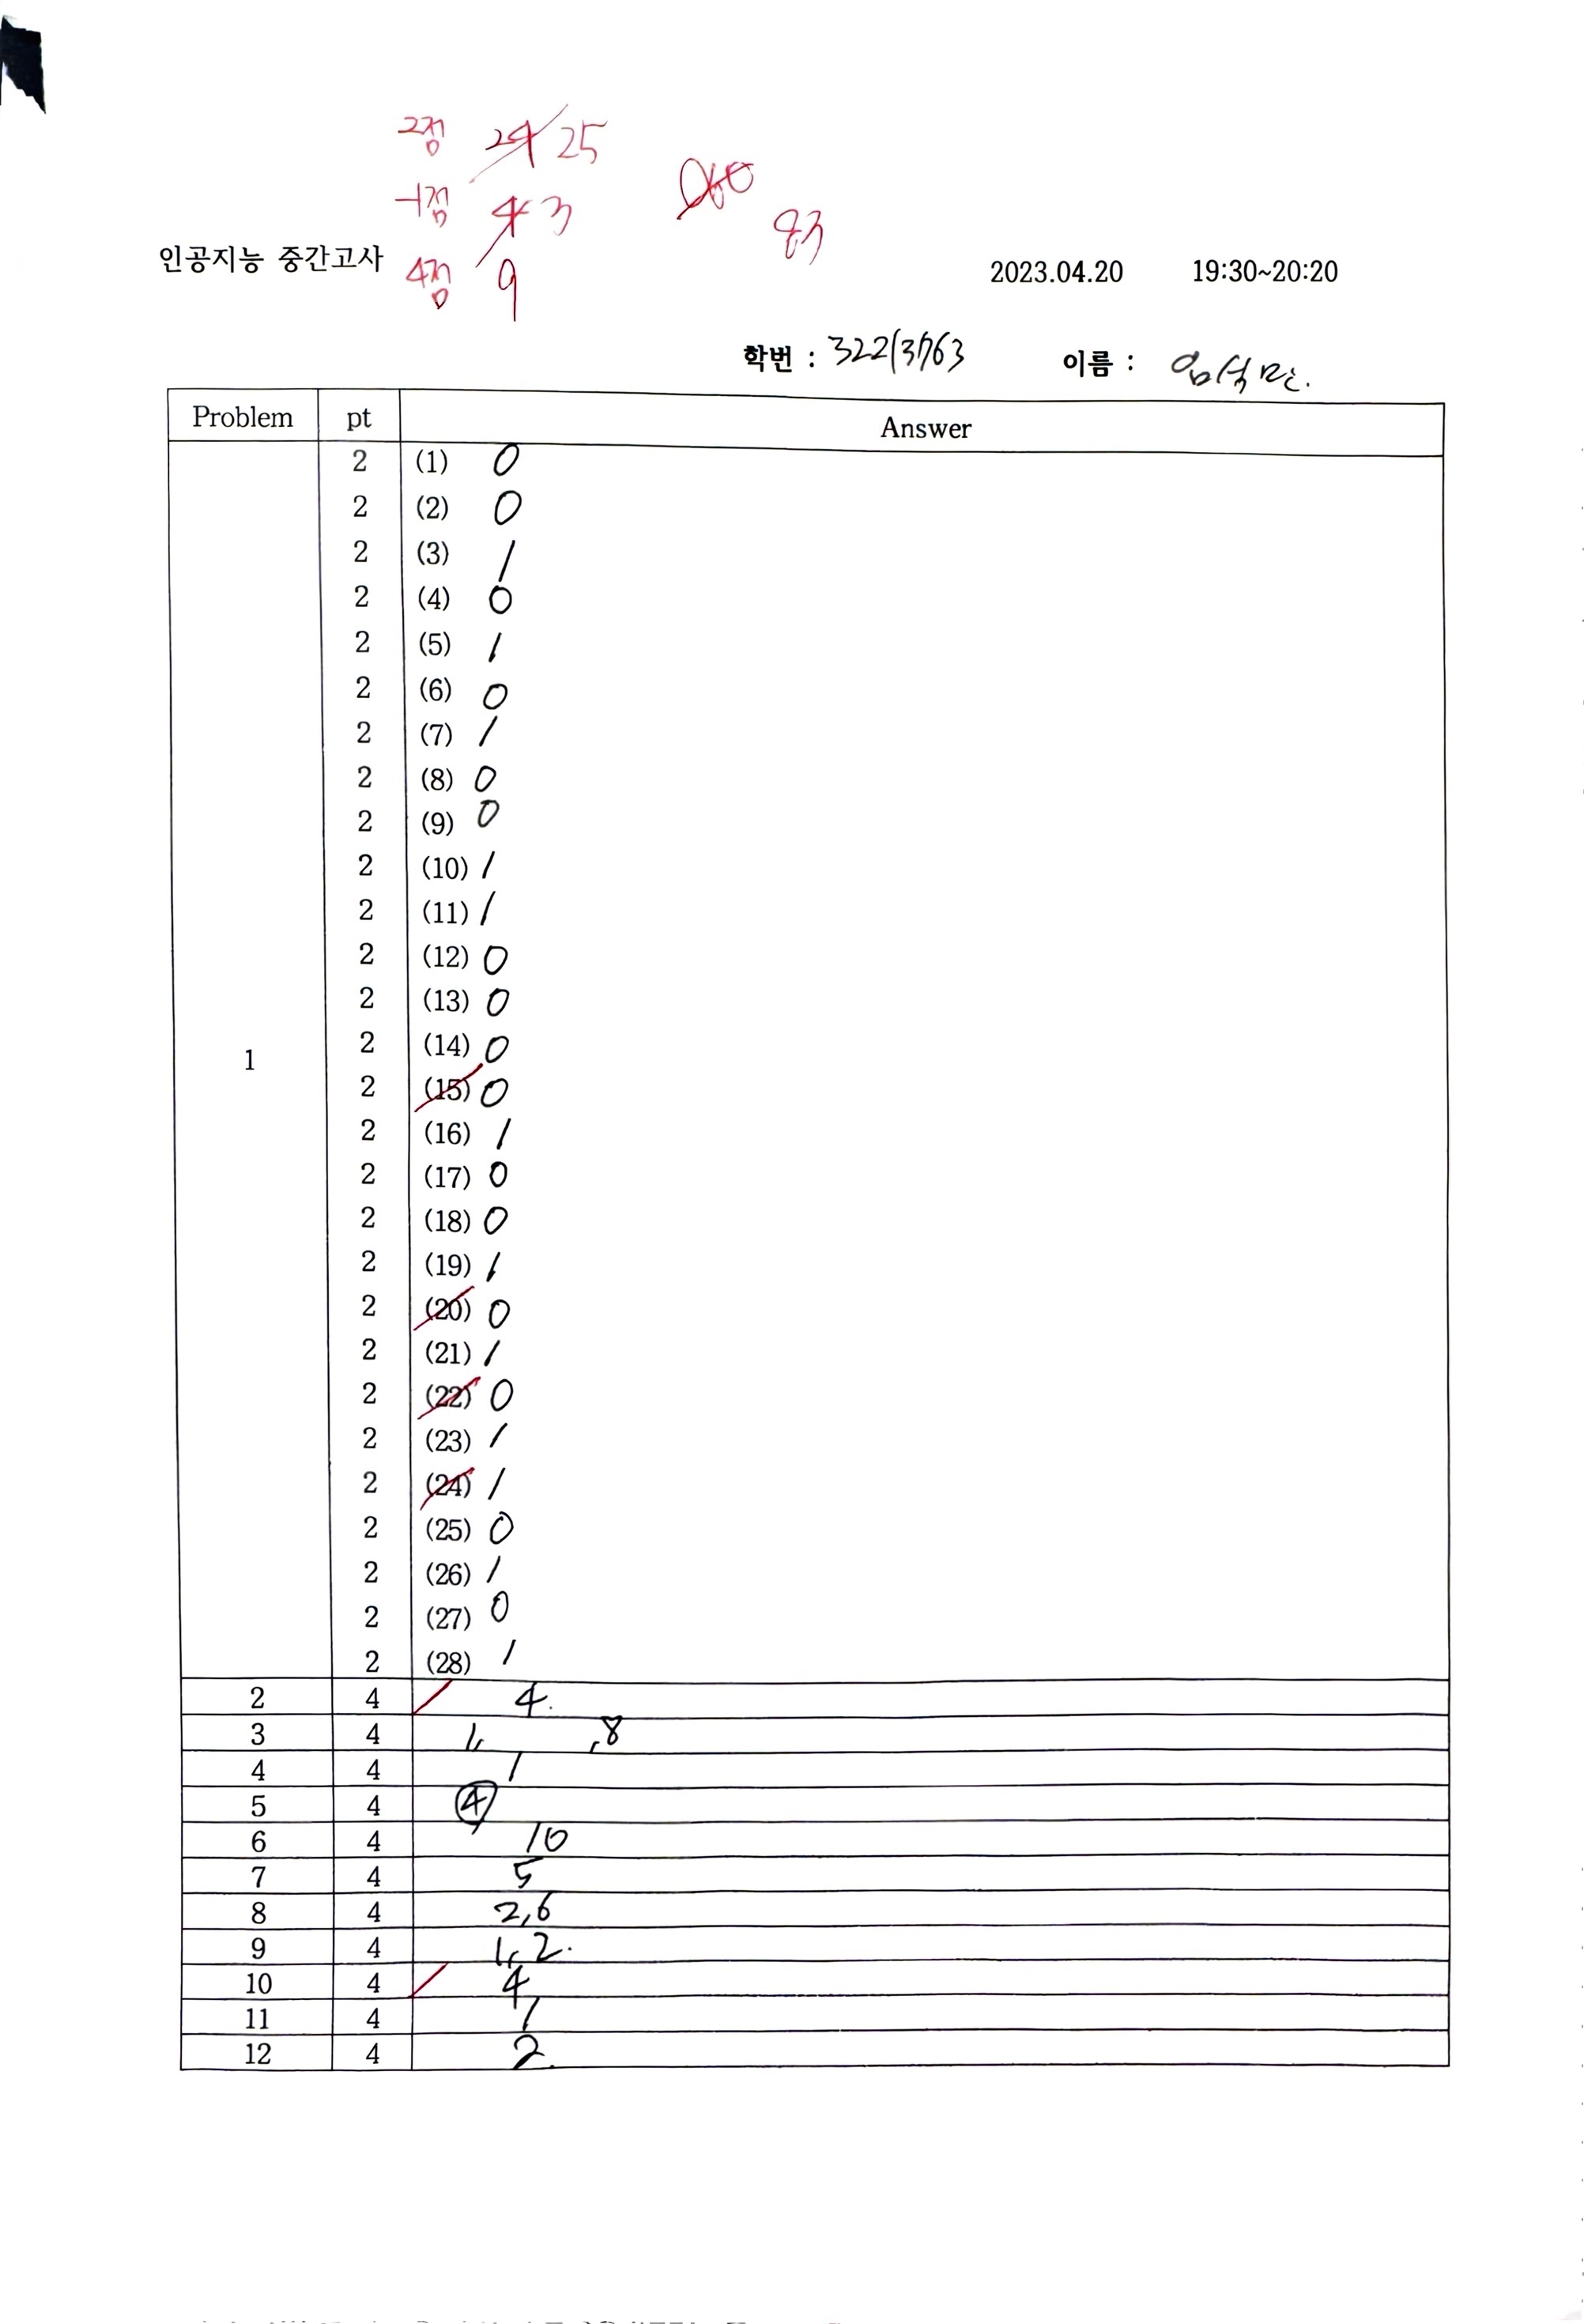 2점 24 25
-1점 4 3
83
인공지능 중간고사 4점 9
2023.04.20 19:30~20:20
학번 : 32213763 이름 : 엄석민.
Problem pt Answer
2 (1) 0
2 (2) 0
2 (3) 1
2 (4) 0
2 (5) 1
2 (6) 0
2 (7) 1
2 (8) 0
2 (9) 0
2 (10) 1
2 (11) 1
2 (12) 0
2 (13) 0
2 (14) 0
1
2 (15) 0
2 (16) 1
2 (17) 0
2 (18) 0
2 (19) 1
2 (20) 0
2 (21) 1
2 (22) 0
2 (23) 1
2 (24) 1
2 (25) 0
2 (26) 1
2 (27) 0
2 (28) 1
2 4 4.
3 4 1, ,8
4 4 1
5 4 ④
6 4 10
7 4 5
8 4 2,6
9 4 1, 2.
10 4 4
11 4 1
12 4 2.